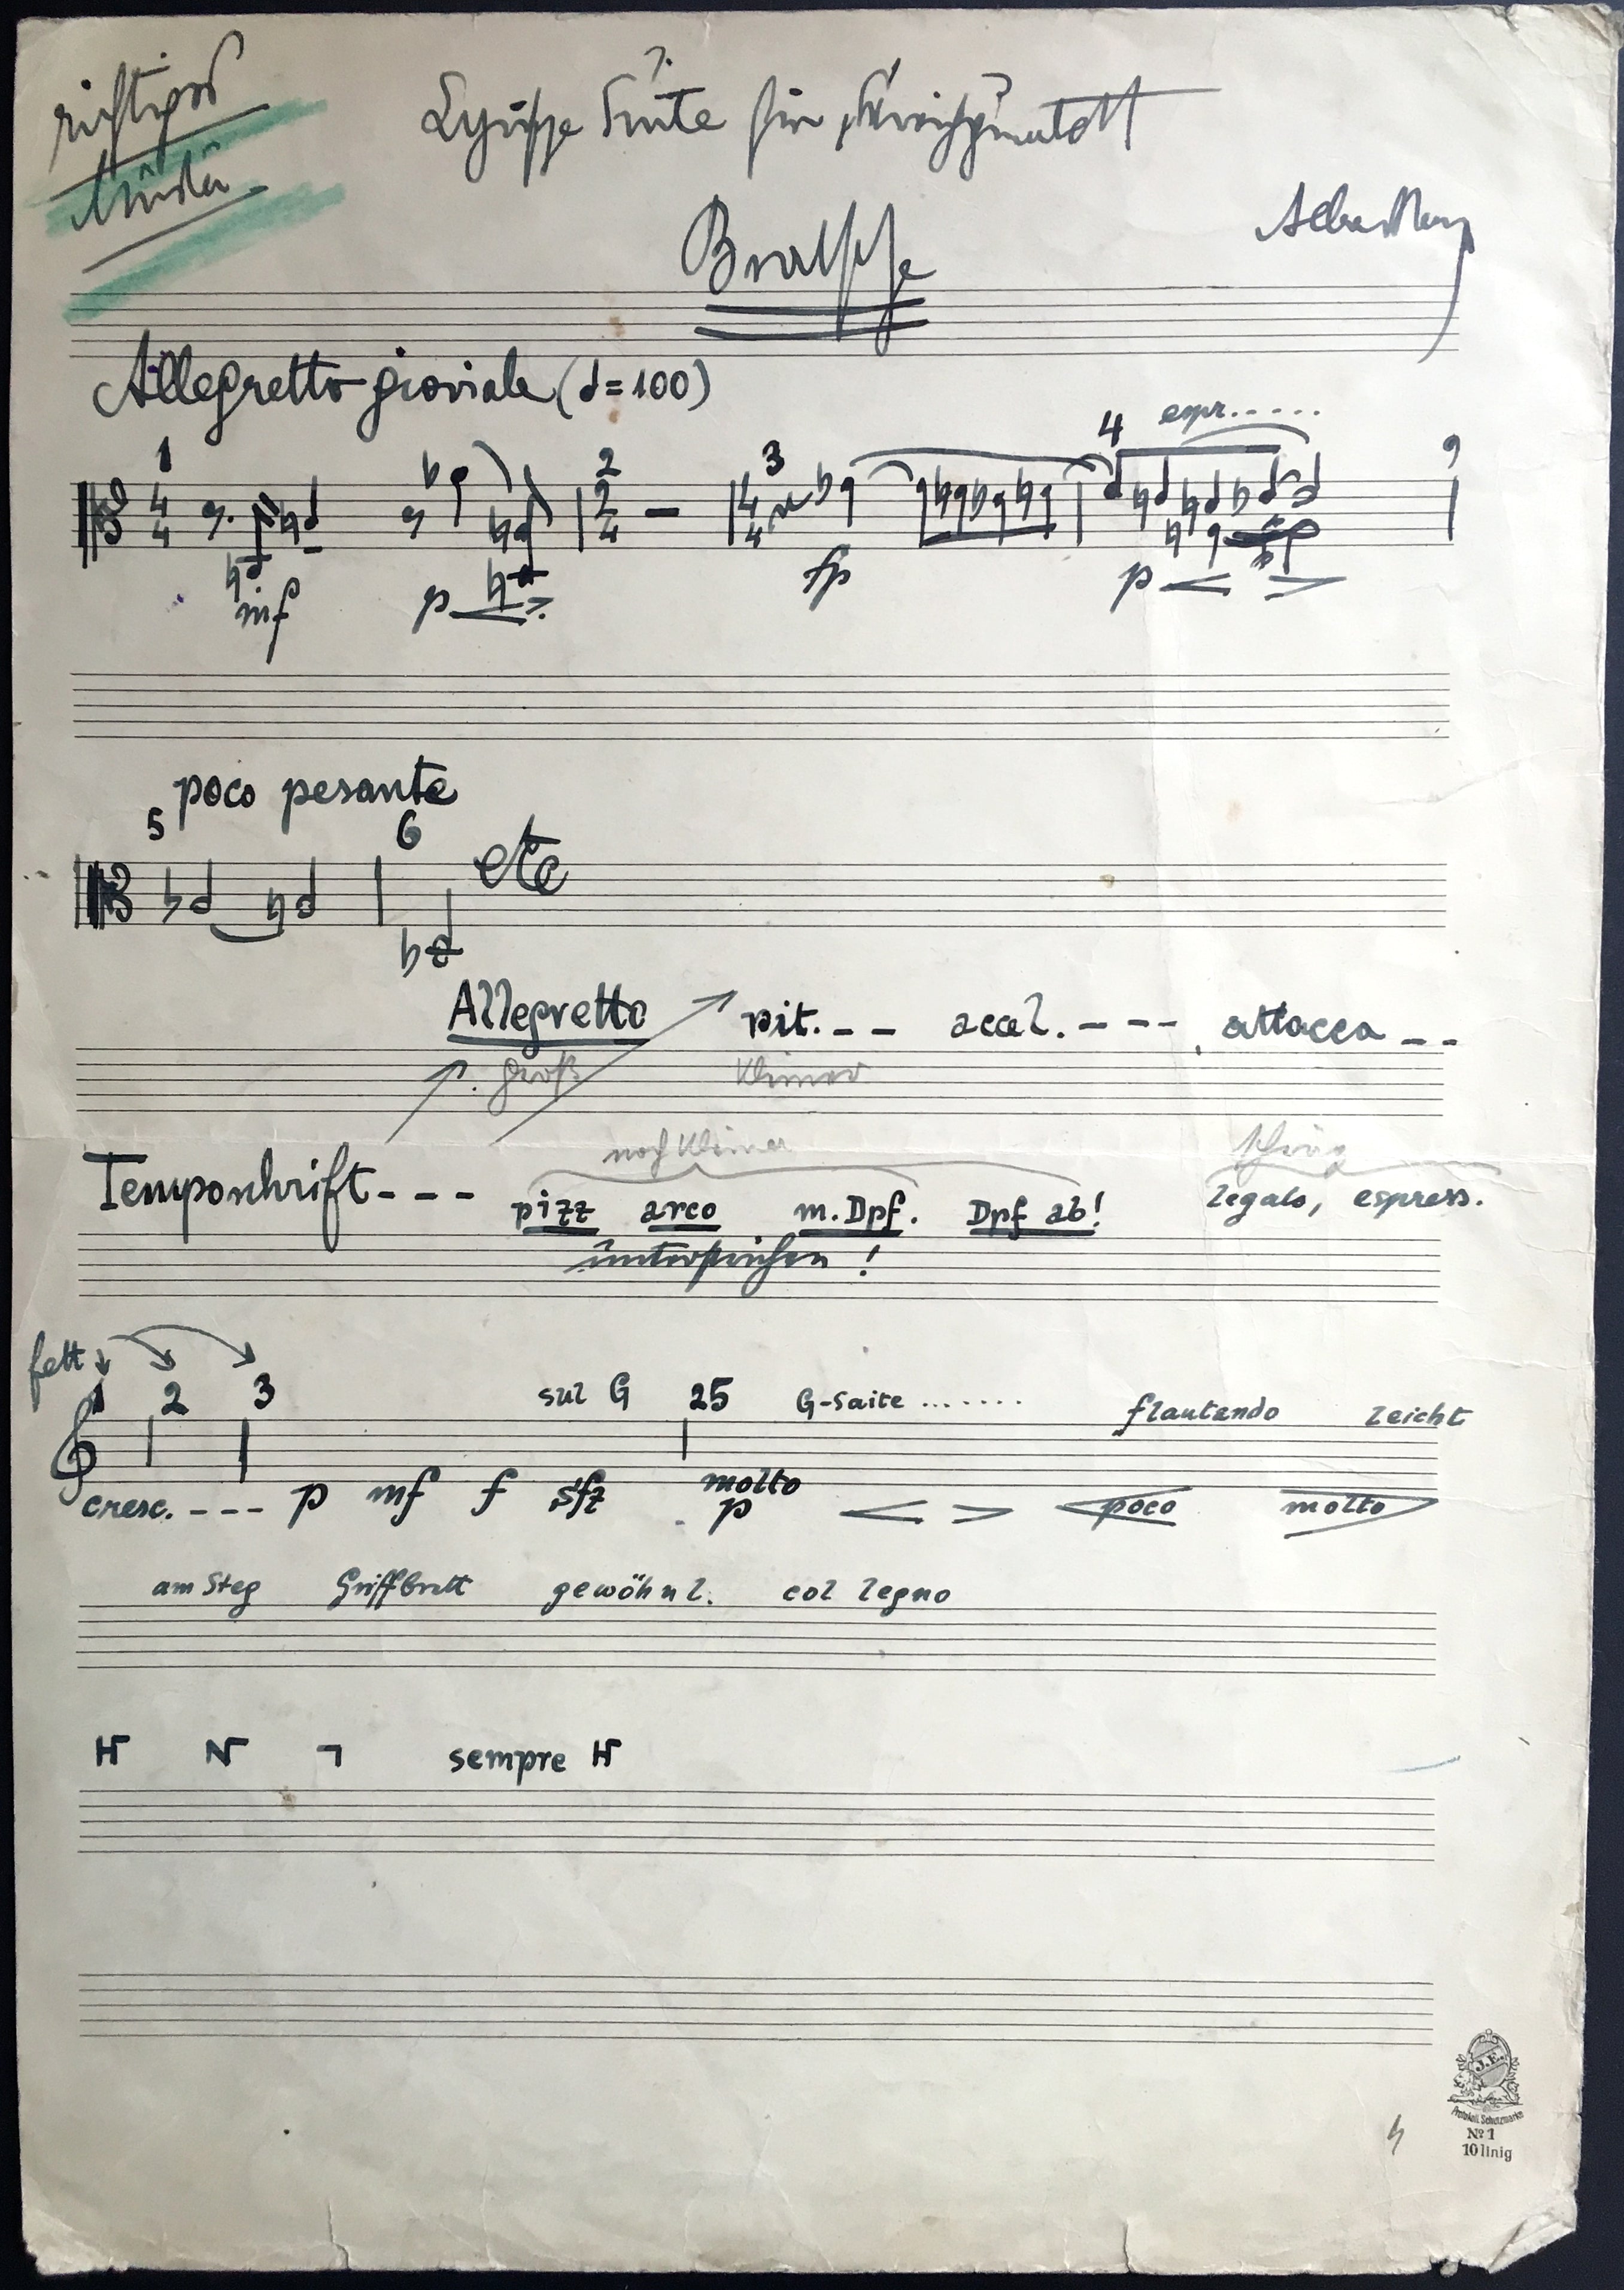 richtiges
Muster
Lyrische Suite für Streichquartett
Bratsche
Alban Berg
Allegretto gioviale (d=100)
1 2 3 4 espr.....
4 4 2 4 4 4
mf p fp p
poco pesante
5 6 etc
Allegretto rit. - - accel. - - - attacca - -
groß kleiner
noch kleiner schräg
Temposchrift - - - pizz arco m. Dpf. Dpf ab! legato, espress.
unterstrichen!
fett
1 2 3 sul G 25 G-Saite ....... flautando leicht
cresc. - - - p mf f sfz molto p poco molto
am Steg Griffbrett gewöhnl. col legno
H N ┐ sempre H
J.E.
Protokoll. Schutzmarke
No 1
10 linig